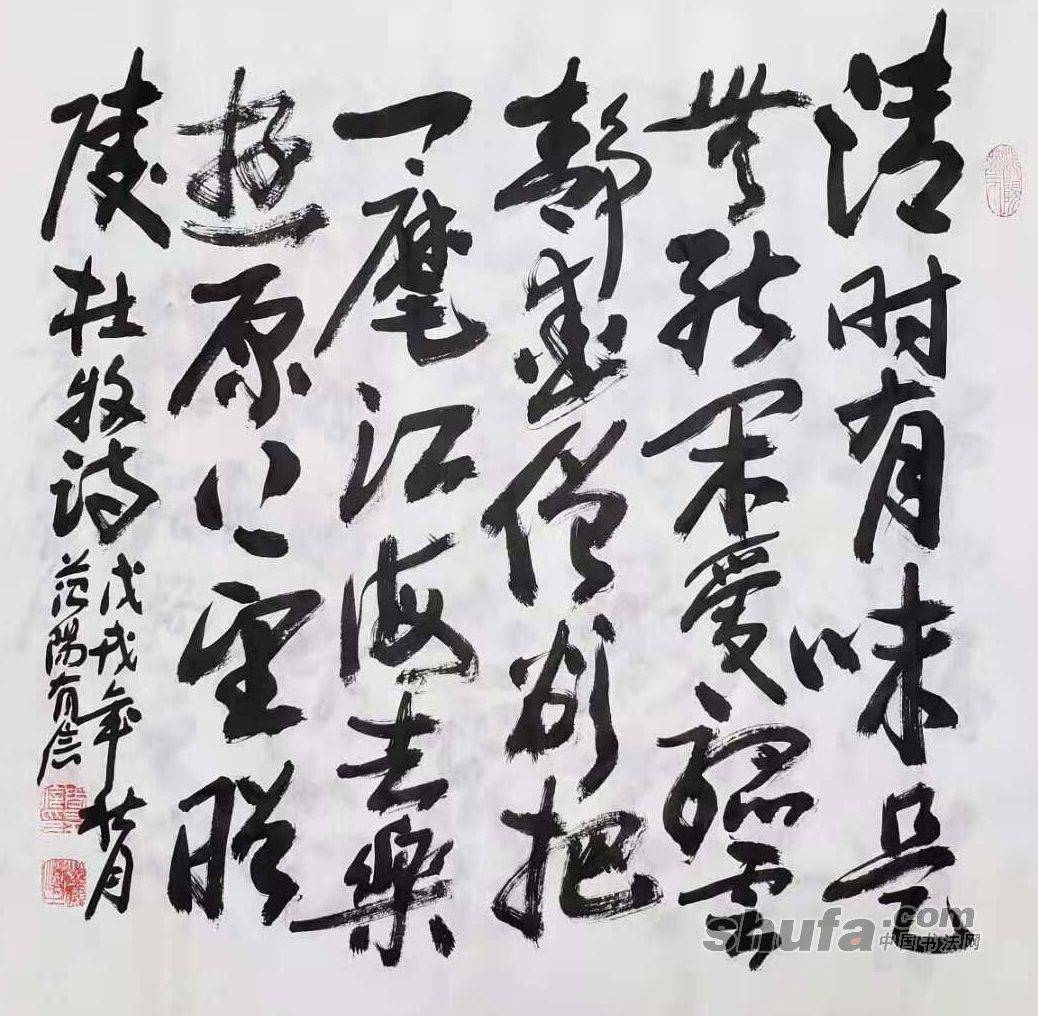 清时有味是
無能闲愛孤雲
静愛僧欲把
一麾江海去樂
遊原上望昭
陵 杜牧诗
戊戌年 月
范陽有信
shufa.com
中国书法网